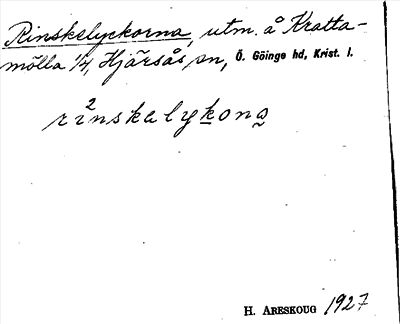 Rinskelyckorna, utm. å Kratta-
mölla 1/4, Hjärsås sn, Ö. Göinge hd, Krist. l.
rinskalykona
2
H. ARESKOUG 1927